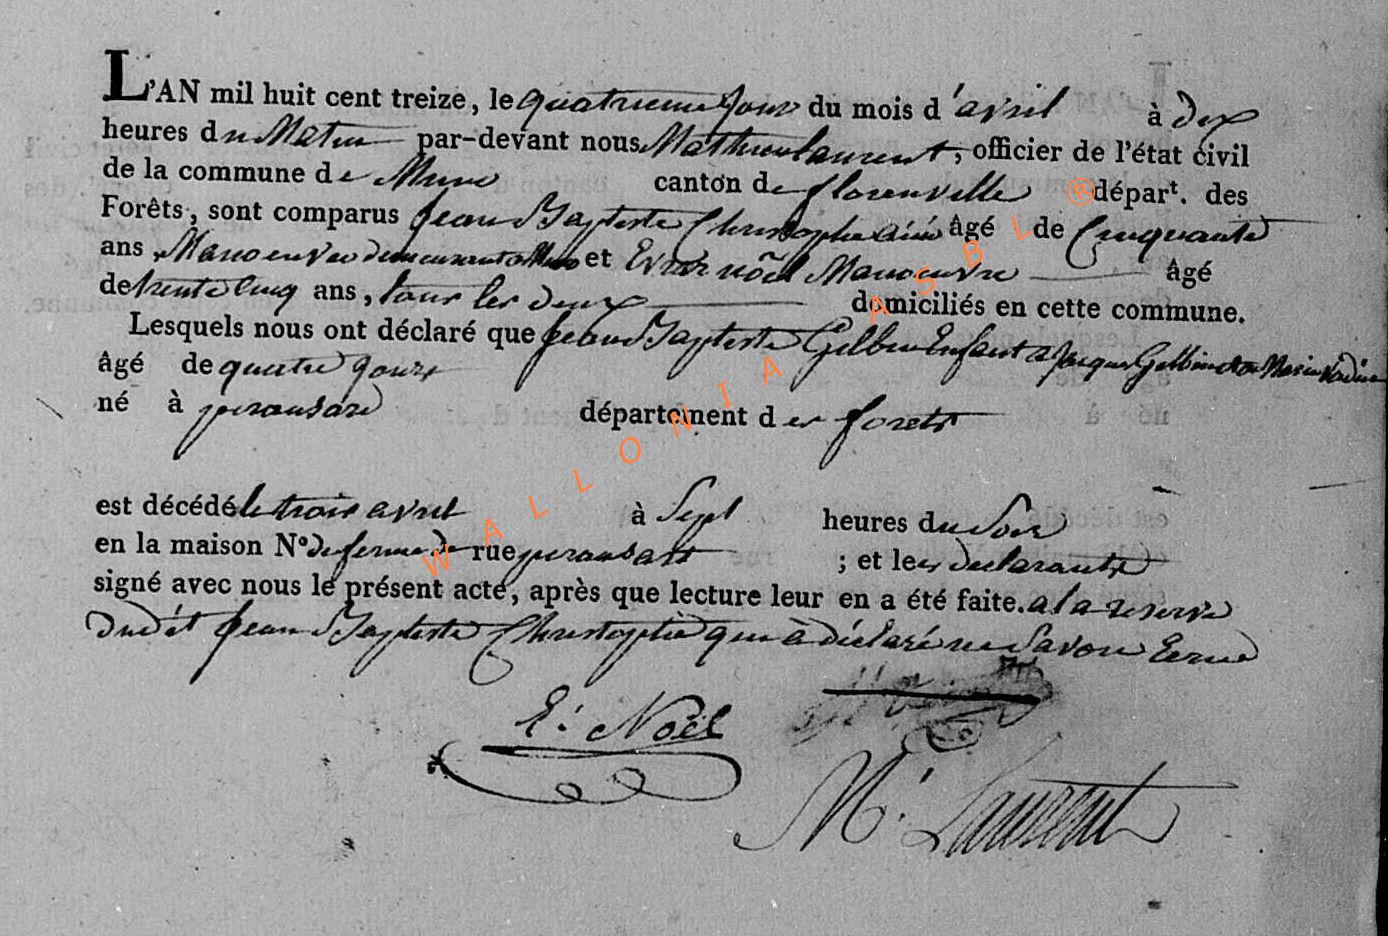 L'AN mil huit cent treize, le quatrieme jour du mois d'avril à dix
heures du Matin par-devant nous Mathieu Laurent, officier de l'état civil
de la commune de Muno canton de florenville départ. des
Forêts, sont comparus jean Baptiste Christophe ainé âgé de Cinquante
ans, Manoeuvre demeurant a Muno et Evrar noël Manoeuvre âgé
de trente Cinq ans, tous les deux domiciliés en cette commune.
Lesquels nous ont déclaré que jean Baptiste Enfant a jacque et de Marie
âgé de quatre jours
né à département des forets
est décédé le trois avril à Sept heures du Soir
en la maison N° de ferme de rue ; et les declarants
signé avec nous le présent acte, après que lecture leur en a été faite. a la reserve
dudit jean Baptiste Christophe qui à déclaré ne Savoir Ecrire
E: Noël
M. Laurent
WALLONIA ASBL ®